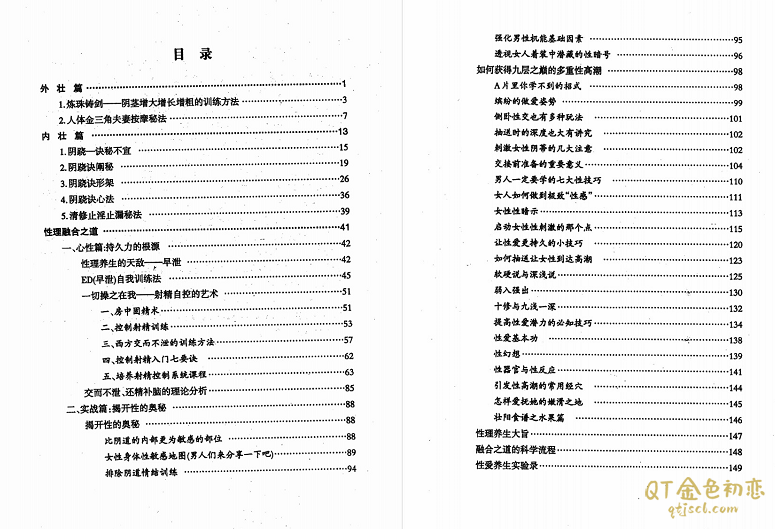 目 录
外 壮 篇 ……1
1.炼珠铸剑——阴茎增大增长增粗的训练方法……3
2.人体金三角夫妻按摩秘法……7
内 壮 篇 ……13
1.阴跷一诀秘不宣 ……15
2.阴跷诀阐秘……19
3.阴跷诀形架 ……26
4.阴跷诀心法 ……36
5.清修止淫止漏秘法 ……39
性理融合之道……41
一、心性篇:持久力的根源 ……42
性理养生的天敌——早泄……42
ED(早泄)自我训练法 ……45
一切操之在我——射精自控的艺术 ……51
一、房中固精术……51
二、控制射精训练……53
三、西方交而不泄的训练方法……57
四、控制射精入门七要诀 ……62
五、培养射精控制系统课程……63
交而不泄、还精补脑的理论分析……85
二、实战篇:揭开性的奥秘 ……88
揭开性的奥秘 ……88
比阴道的内部更为敏感的部位 ……88
女性身体性敏感地图(男人们来分享一下吧)……89
排除阴道情结训练 ……94
强化男性机能基础因素 ……95
透视女人着装中潜藏的性暗号 ……96
如何获得九层之巅的多重性高潮 ……98
A片里你学不到的招式 ……98
缤纷的做爱姿势 ……99
侧卧性交也有多种玩法 ……101
抽送时的深度也大有讲究 ……102
刺激女性阴蒂的几大注意 ……102
交接前准备的重要意义……104
男人一定要学的七大性技巧 ……110
女人如何做到极致“性感”……111
女性性暗示……113
启动女性性刺激的那个点……115
让性爱更持久的小技巧 ……120
如何抽送让女性到达高潮 ……123
软硬说与深浅说……125
弱入强出 ……130
十修与九浅一深……132
提高性爱潜力的必知技巧……134
性爱基本功 ……138
性幻想……139
性器官与性反应……141
引发性高潮的常用经穴 ……144
怎样爱抚她的嫩滑之地 ……145
壮阳食谱之水果篇 ……146
性理养生大旨……147
融合之道的科学流程……148
性爱养生实验录……149
QT金色初恋
qtjscl.com